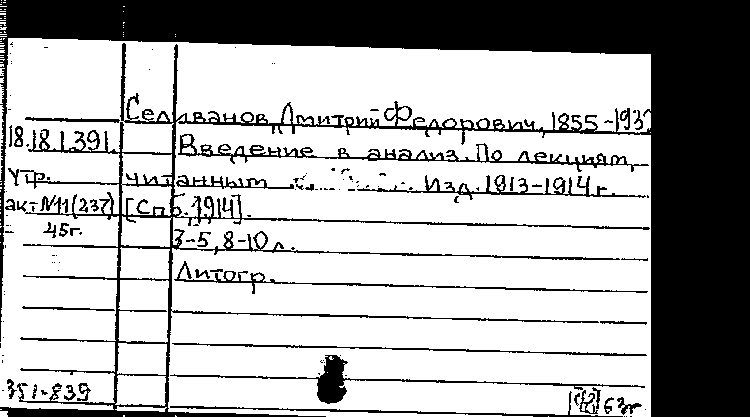 Селиванов, Дмитрий Федорович, 1855-193
18.18.1.391. Введение в анализ. По лекциям,
Утр. читанным Изд. 1913-1914 г.
акт N11(237) [Спб., 1914].
45г. 3-5, 8-10 л.
Литогр.
351-839 63г